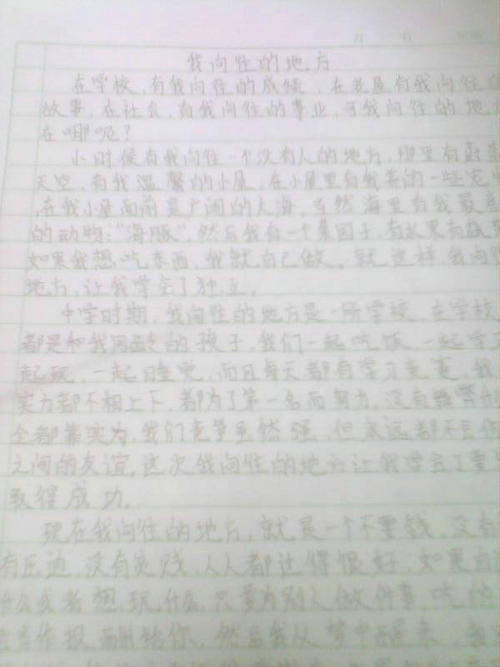 月 日
我向往的地方
在学校,有我向往的成绩,在家里有我向往的
故事,在社会,有我向往的事业,可我向往的地
在哪呢?
小时候有我向往一个没有人的地方,那里有蔚蓝
天空,有我温馨的小屋,在小屋里有我养的一些宠
,在我小屋面前是广阔的大海,当然海里有我最喜
的动物:“海豚”,然后我有一个菜园子,有水果有蔬
如果我想吃东西,我就自己做。就这样,我向往
地方,让我学会了独立。
中学时期,我向往的地方是一所学校,在学校
都是和我同龄的孩子,我们一起吃饭,一起学
起玩,一起睡觉,而且每天都有学习竞赛,我
实力都不相上下,都为了第一名而努力,没有
全都靠实力,我们竞争虽然强,但永远都不会
之间的友谊,这次我向往的地方让我学会了
取得成功。
现在我向往的地方,就是一个不要钱,没有
有压迫,没有贫贱,人人都过得很好,如果
什么或者想玩什么,只要为别人做件事,吃的
会当作报酬给你,然后我从梦中醒来